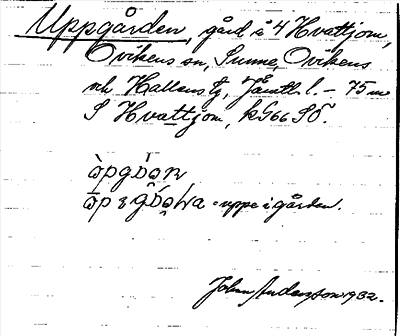 Uppgården, gård i 4 Hvattjom,
Ovikens sn, Sunne, Ovikens
och Hallens tg, Jämtl. l. - 75 m
S Hvattjom, kG66 SÖ.
uppe i gården.
John Andersson 1932.